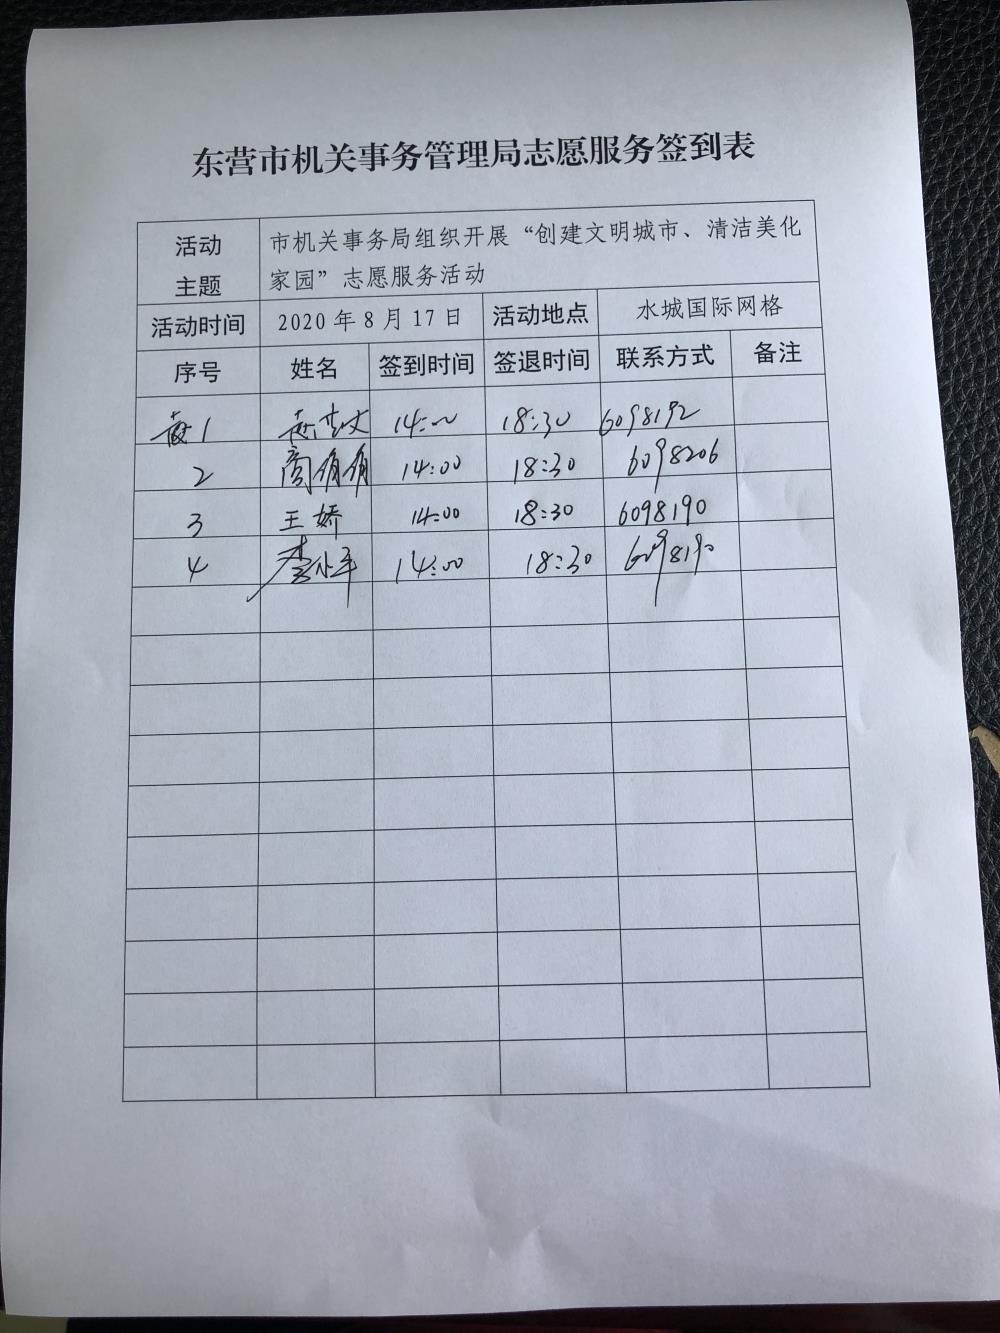 东营市机关事务管理局志愿服务签到表
活动
主题
市机关事务局组织开展“创建文明城市、清洁美化
家园”志愿服务活动
活动时间 2020年8月17日 活动地点 水城国际网格
序号 姓名 签到时间 签退时间 联系方式 备注
1 14:00 18:30 6098192
2 商娟娟 14:00 18:30 6098206
3 王娇 14:00 18:30 6098190
4 14:00 18:30 6098190